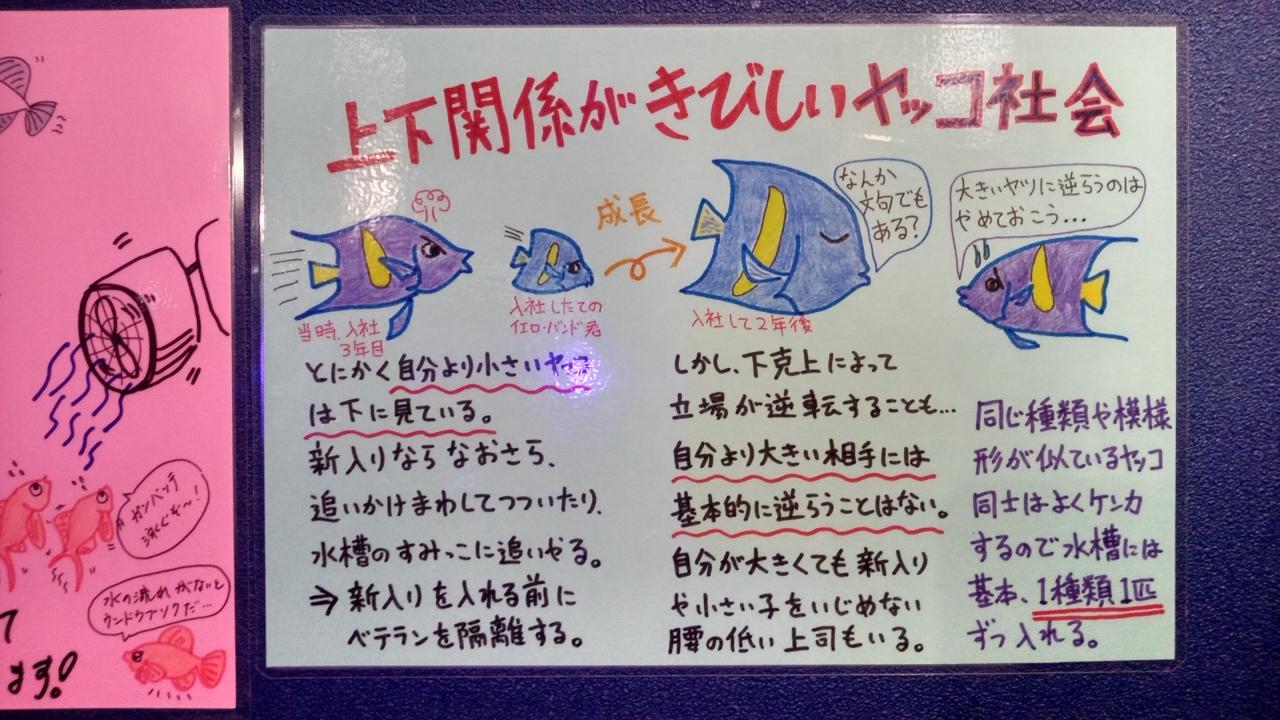 上下関係がきびしいヤッコ社会
当時、入社
3年目
入社したての
イエロ・バンド君
成長
入社して2年後
なんか
文句でも
ある?
大きいヤツに逆らうのは
やめておこう…
とにかく自分より小さいヤッコ
は下に見ている。
新入りならなおさら、
追いかけまわしてつついたり、
水槽のすみっこに追いやる。
⇒新入りを入れる前に
ベテランを隔離する。
しかし、下克上によって
立場が逆転することも…
自分より大きい相手には
基本的に逆らうことはない。
自分が大きくても新入り
や小さい子をいじめない
腰の低い上司もいる。
同じ種類や模様
形が似ているヤッコ
同士はよくケンカ
するので水槽には
基本、1種類1匹
ずつ入れる。
ガンバッテ
泳ぐぞ~!
水の流れがないと
ウンドウブソクだ…
て
ます!